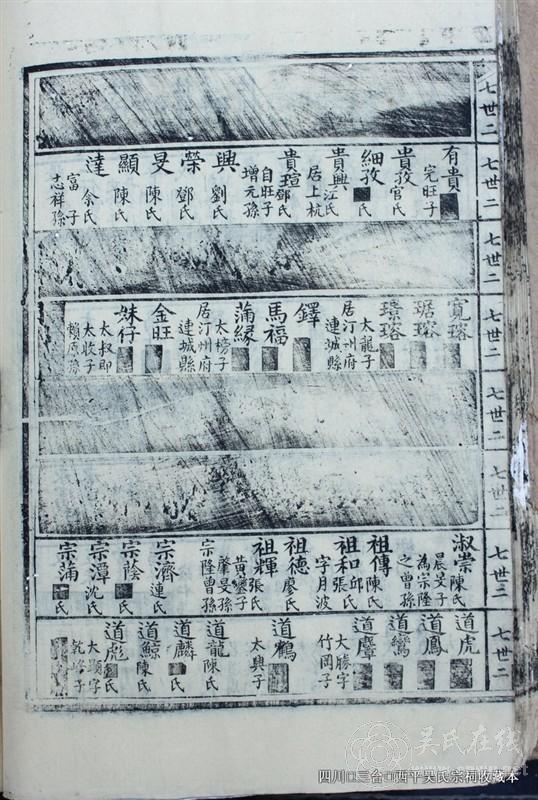 七世二
七世二
有貴
完旺子
貴孜
官氏
細孜
氏
貴興
江氏
居上杭
貴瑄
鄧氏
自旺子
增元孫
興
劉氏
榮
鄧氏
旻
陳氏
顯
陳氏
達
余氏
富子
志祥孫
七世二
七世二
寬瑢
琚瑢
璟瑢
太龍子
居汀州府
連城縣
鐸
馬福
蒲緣
太榜子
居汀州府
連城縣
金旺
妹仔
太叔即
太收子
賴原孫
七世二
七世二
七世二
淑崇
陳氏
晨旻子
為宗隆
之曾孫
祖傳
陳氏
祖和
邱氏
張氏
字月波
祖德
廖氏
祖輝
張氏
黃鑾子
肇旻孫
宗隆曾孫
宗濟
連氏
宗蔭
氏
宗潭
沈氏
宗蒲
氏
七世二
道虎
道鳳
道鸞
道麞
大勝字
竹岡子
道鶴
太興子
道龍
陳氏
道麟
氏
道鯨
陳氏
道彪
氏
大顯字
乾峰子
吴氏在线
四川□三台□西平吴氏宗祠收藏本